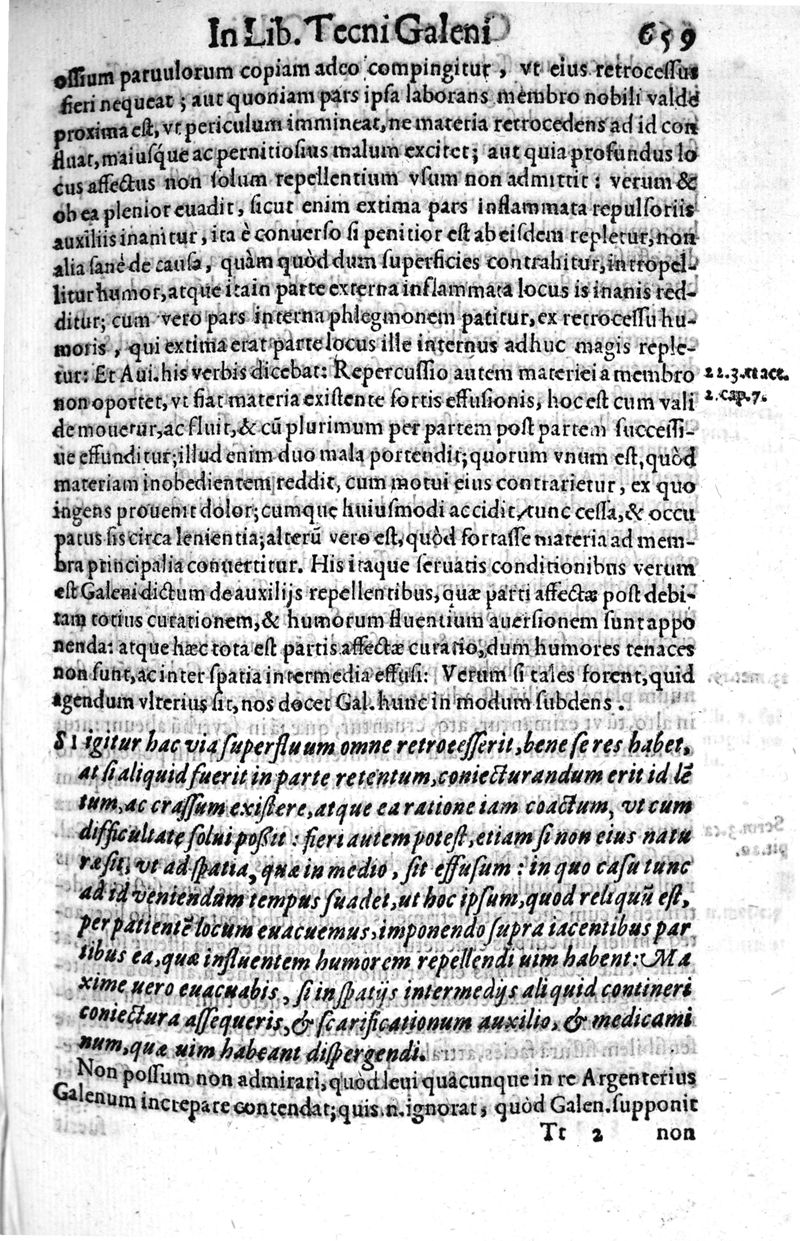 In Lib. Tecni Galeni 659
ossium paruulorum copiam adeo compingitur, vt eius retrocessus
fieri nequeat; aut quoniam pars ipsa laborans membro nobili valde
proxima est, vt periculum immineat, ne materia retrocedens ad id con
fluat, maiusque ac pernitiosius malum excitet; aut quia profundus lo
cus affectus non solum repellentium vsum non admittit: verum &
ob ea plenior euadit, sicut enim extima pars inflammata repulsoriis
auxiliis inanitur, ita è conuerso si penitior est ab eisdem repletur, non
alia sanè de causa, quàm quòd dum superficies contrahitur, intropel-
litur humor, atque ita in parte externa inflammata locus is inanis red-
ditur; cum vero pars interna phlegmonem patitur, ex retrocessu hu-
moris, qui extima erat parte locus ille internus adhuc magis reple-
tur: Et Aui. his verbis dicebat: Repercussio autem materiei a membro
22. 3. tract.
non oportet, vt fiat materia existente fortis effusionis, hoc est cum vali
2. cap. 7.
de mouetur, ac fluit, & cū plurimum per partem post partem successi-
ue effunditur; illud enim duo mala portendit; quorum vnum est, quòd
materiam inobedientem reddit, cum motui eius contrarietur, ex quo
ingens prouenit dolor; cumque huiusmodi accidit, tunc cessa, & occu
patus sis circa lenientia; alterū vero est, quòd fortasse materia ad mem-
bra principalia conuertitur. His itaque seruatis conditionibus verum
est Galeni dictum de auxilijs repellentibus, quæ parti affectæ post debi-
tam totius curationem, & humorum fluentium auersionem sunt appo
nenda: atque hæc tota est partis affectæ curatio, dum humores tenaces
non sunt, ac inter spatia intermedia effusi: Verum si tales forent, quid
agendum vlterius sit, nos docet Gal. hunc in modum subdens.
SI igitur hac via superfluum omne retrocesserit, bene se res habet,
at si aliquid fuerit in parte retentum, coniecturandum erit id lē
tum, ac crassum existere, atque ea ratione iam coactum, vt cum
difficultate solui possit: fieri autem potest, etiam si non eius natu
ræ sit, vt ad spatia, quæ in medio, sit effusum: in quo casu tunc
ad id veniendum tempus suadet, ut hoc ipsum, quod reliquū est,
per patientē locum euacuemus, imponendo supra iacentibus par
tibus ea, quæ influentem humorem repellendi uim habent: Ma
xime uero euacuabis, si in spatijs intermedijs aliquid contineri
coniectura assequeris, & scarificationum auxilio, & medicami
num, quæ uim habeant dispergendi.
Non possum non admirari, quòd leui quacunque in re Argenterius
Galenum increpare contendat; quis .n. ignorat, quòd Galen. supponit
Tt 2 non